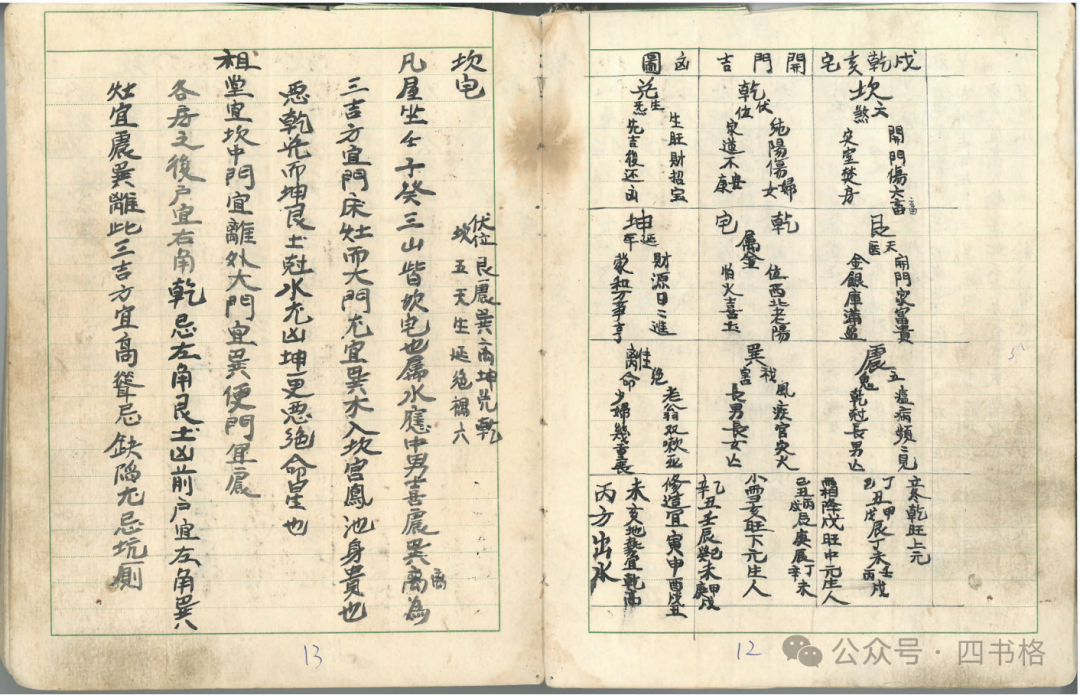 戍乾亥宅開門吉凶圖
坎六煞
開門傷六畜
災室焚房
乾伏位
純陽傷婦女
家道不安康
兌生炁
生旺財招宝
先吉後还凶
艮天医
開門家富貴
金銀庫滿盈
乾宅属金
位西北老陽
怕火喜土
坤延年
財源日日進
蒙和万事亨
震五鬼
瘟病頻々見
乾尅長男亡
巽祸害
風疾官災火
長男長女亡
離絕命
老翁双秋亟
少婦幾重喪
立冬乾旺上元
丁丑甲辰丁未壬戌
己戊丙
霜降戍旺中元生人
己丑丙辰庚辰丁未
戊辛
小雪亥旺下元生人
乙丑壬辰癸未甲戌
辛己庚
修造宜寅申酉戌丑
未亥地势宜乾高
丙方出水
12
坎宅
伏位艮震巽离坤兑乾
坎五天生延絕禍六
凡屋坐壬子癸三山皆坎宅也屬水應中男喜震巽离為
離
三吉方宜門床灶而大門尤宜巽木入坎宮鳳池身貴也
惡乾兑而坤艮土尅水尤凶坤更惡絕命星也
祖堂宜坎中門宜離外大門宜巽便門宜震
各房之後户宜右角乾忌左角艮土凶前户宜左角巽
灶宜震巽離此三吉方宜高聳忌缺陷尤忌坑厠
13
公众号·四书格